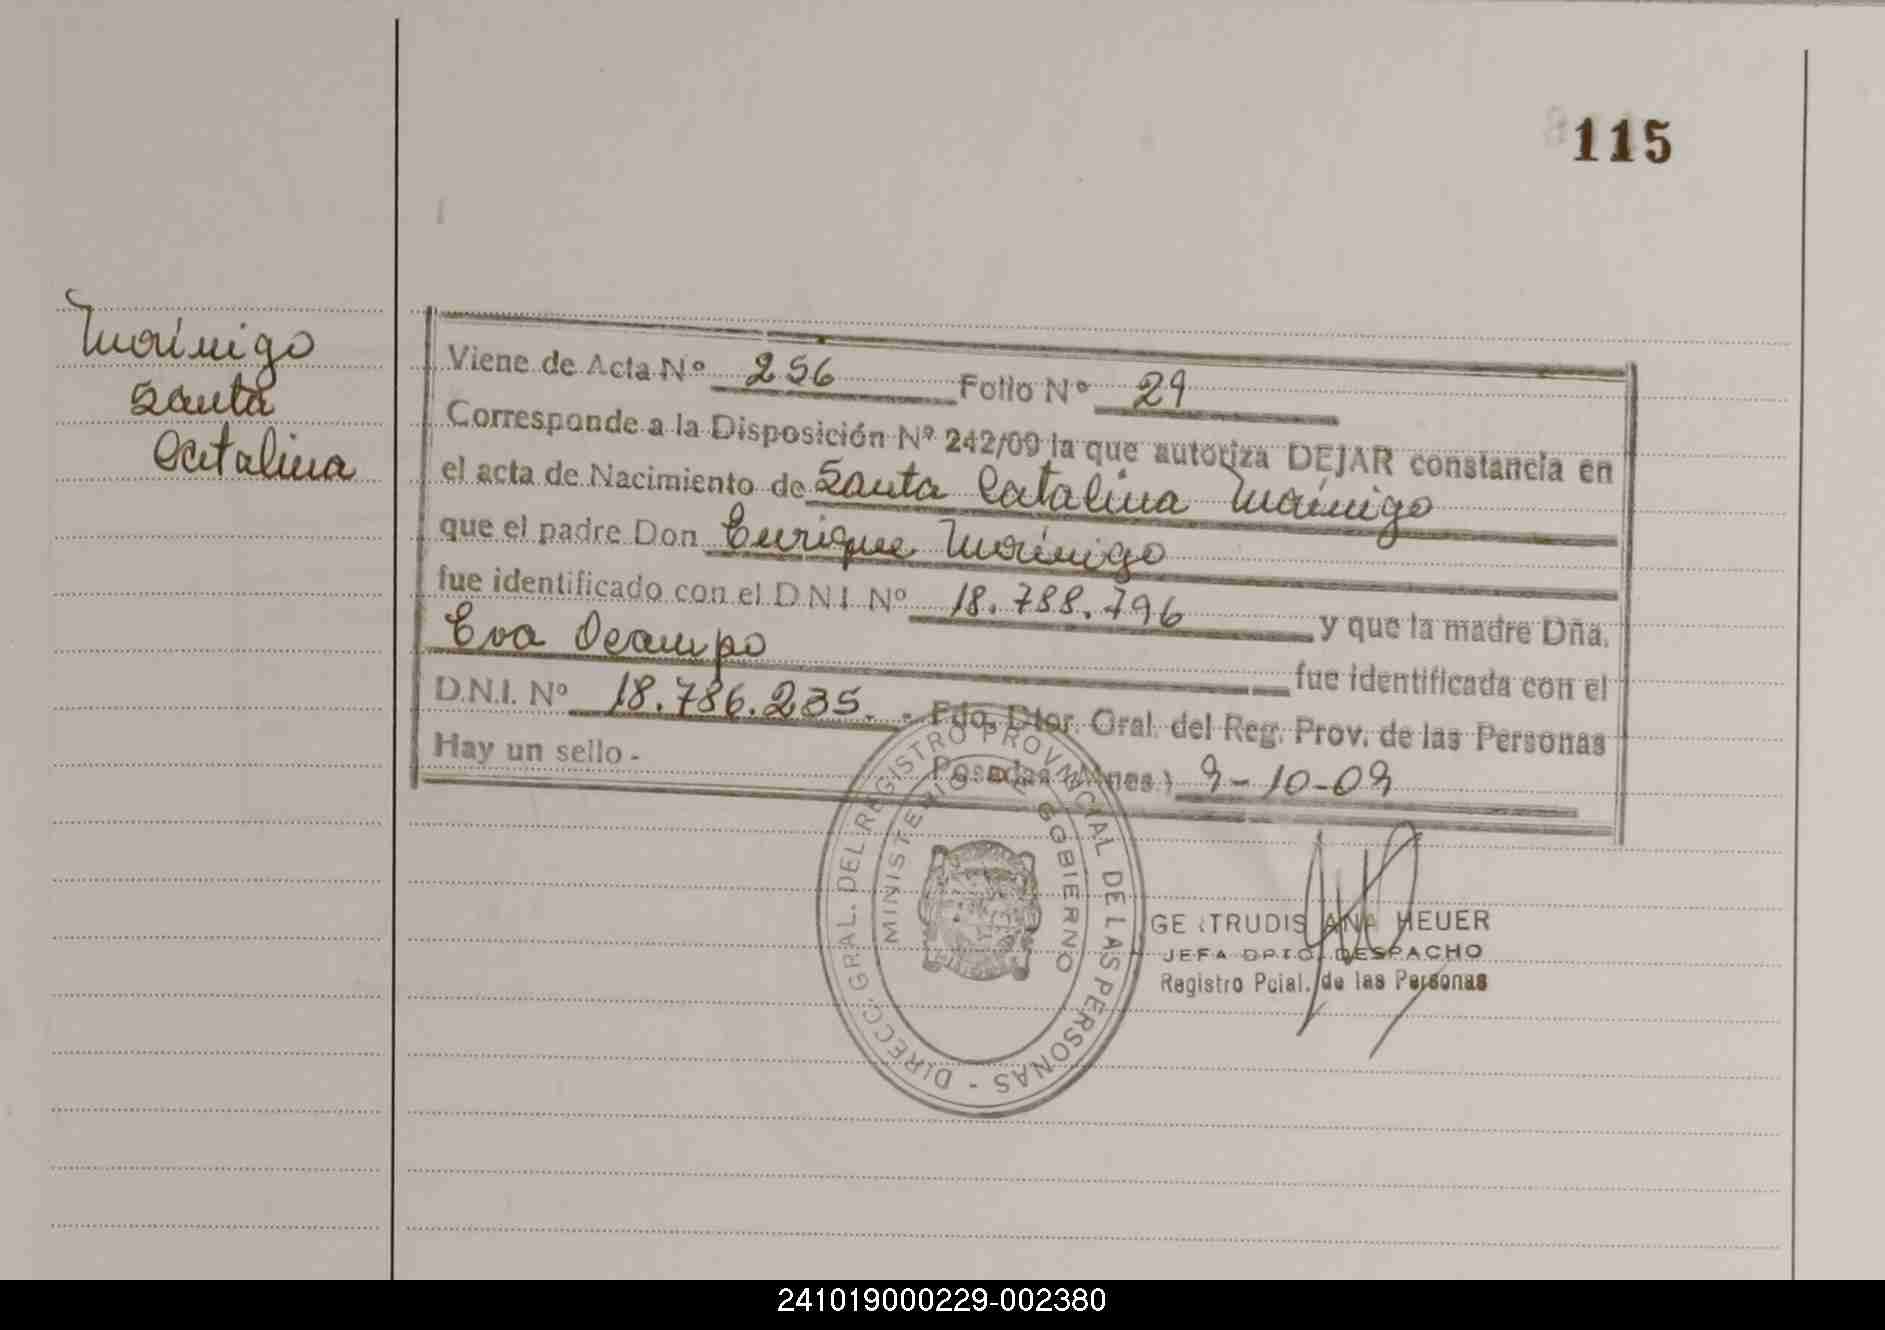 115
Morinigo
Santa
Catalina
Viene de Acta Nº 256 Folio Nº 29
Corresponde a la Disposición Nº 242/09 la que autoriza DEJAR constancia en
el acta de Nacimiento de Santa Catalina Morinigo
que el padre Don Enrique Morinigo
fue identificado con el D.N.I. Nº 18.788.796 y que la madre Dña.
Eva Ocampo fue identificada con el
D.N.I. Nº 18.786.235. - Fdo. Dtor. Gral. del Reg. Prov. de las Personas
Hay un sello -
Posadas (Mnes.) 9-10-09
DIRECC. GRAL. DEL REGISTRO PROVINCIAL DE LAS PERSONAS -
MINISTERIO DE GOBIERNO
GERTRUDIS ANA HEUER
JEFA DPTO. DESPACHO
Registro Pcial. de las Personas
241019000229-002380